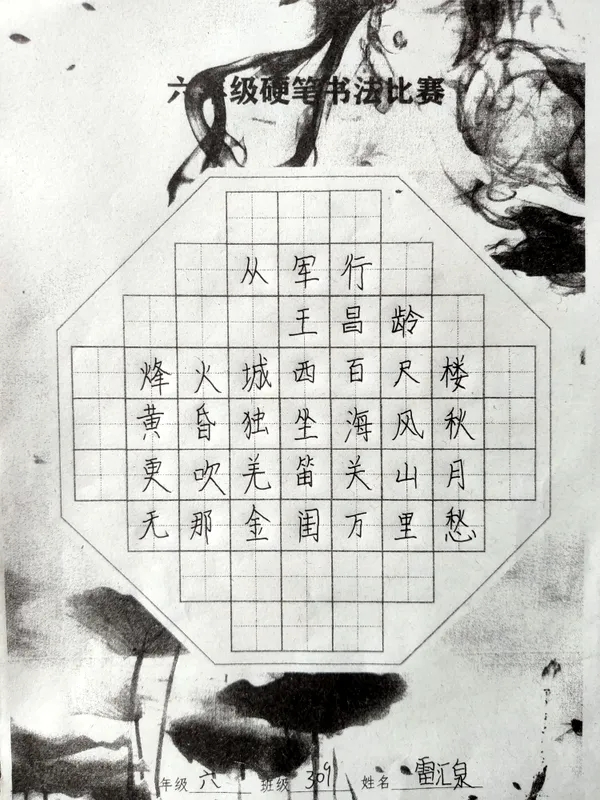 六年级硬笔书法比赛
从军行
王昌龄
烽火城西百尺楼
黄昏独坐海风秋
更吹羌笛关山月
无那金闺万里愁
年级 六 班级 309 姓名 雷汇泉